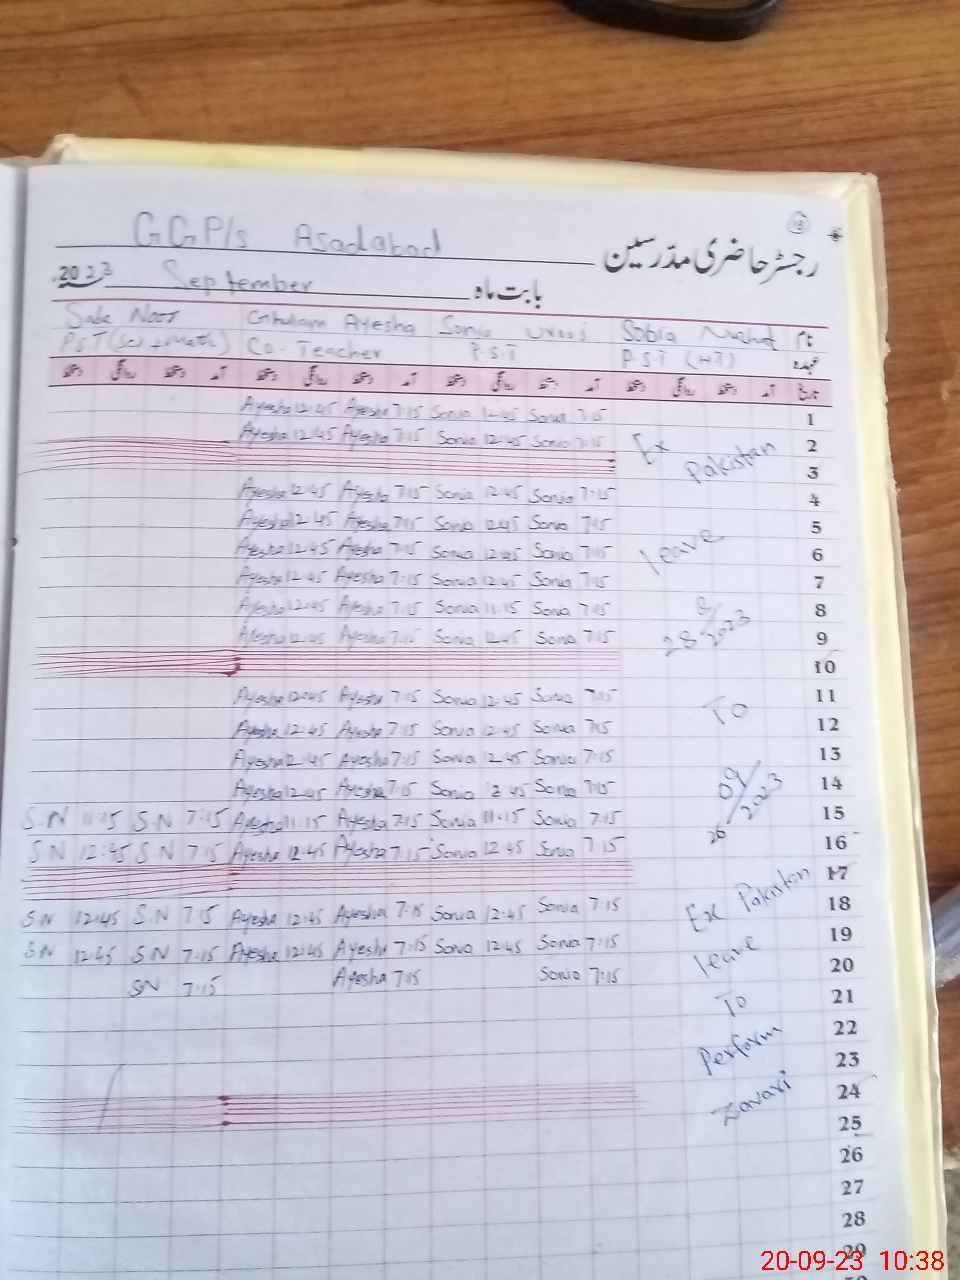 13
GGP/s Asadabad رجسٹر حاضری مدرسین
2023 September بابت ماہ
Noor Ghulam Ayesha Sonia Sobia نام
PST (Sci + Math) Co-Teacher P.S.T P.S.T (HT) عہدہ
دستخط روانگی دستخط آمد دستخط روانگی دستخط آمد دستخط روانگی دستخط آمد دستخط روانگی دستخط آمد تاریخ
Ayesha 12:45 Ayesha 7:15 Sonia 12:45 Sonia 7:15 1
Ayesha 12:45 Ayesha 7:15 Sonia 12:45 Sonia 7:15 Ex 2
Pakistan 3
Ayesha 12:45 Ayesha 7:15 Sonia 12:45 Sonia 7:15 4
Ayesha 12:45 Ayesha 7:15 Sonia 12:45 Sonia 7:15 5
Ayesha 12:45 Ayesha 7:15 Sonia 12:45 Sonia 7:15 leave 6
Ayesha 12:45 Ayesha 7:15 Sonia 12:45 Sonia 7:15 7
Ayesha 12:45 Ayesha 7:15 Sonia 11:15 Sonia 7:15 8
Ayesha 12:45 Ayesha 7:15 Sonia 12:45 Sonia 7:15 28/8/2023 9
10
Ayesha 12:45 Ayesha 7:15 Sonia 12:45 Sonia 7:15 To 11
Ayesha 12:45 Ayesha 7:15 Sonia 12:45 Sonia 7:15 12
Ayesha 12:45 Ayesha 7:15 Sonia 12:45 Sonia 7:15 13
Ayesha 12:45 Ayesha 7:15 Sonia 12:45 Sonia 7:15 14
S.N 11:15 S.N 7:15 Ayesha 11:15 Ayesha 7:15 Sonia 11:15 Sonia 7:15 26/09/2023 15
S N 12:45 S N 7:15 Ayesha 12:45 Ayesha 7:15 Sonia 12:45 Sonia 7:15 16
17
S N 12:45 S.N 7:15 Ayesha 12:45 Ayesha 7:15 Sonia 12:45 Sonia 7:15 Ex Pakistan 18
S N 12:45 S N 7:15 Ayesha 12:45 Ayesha 7:15 Sonia 12:45 Sonia 7:15 leave 19
SN 7:15 Ayesha 7:15 Sonia 7:15 20
To 21
22
Perform 23
Zavari 24
25
26
27
28
29
20-09-23 10:38